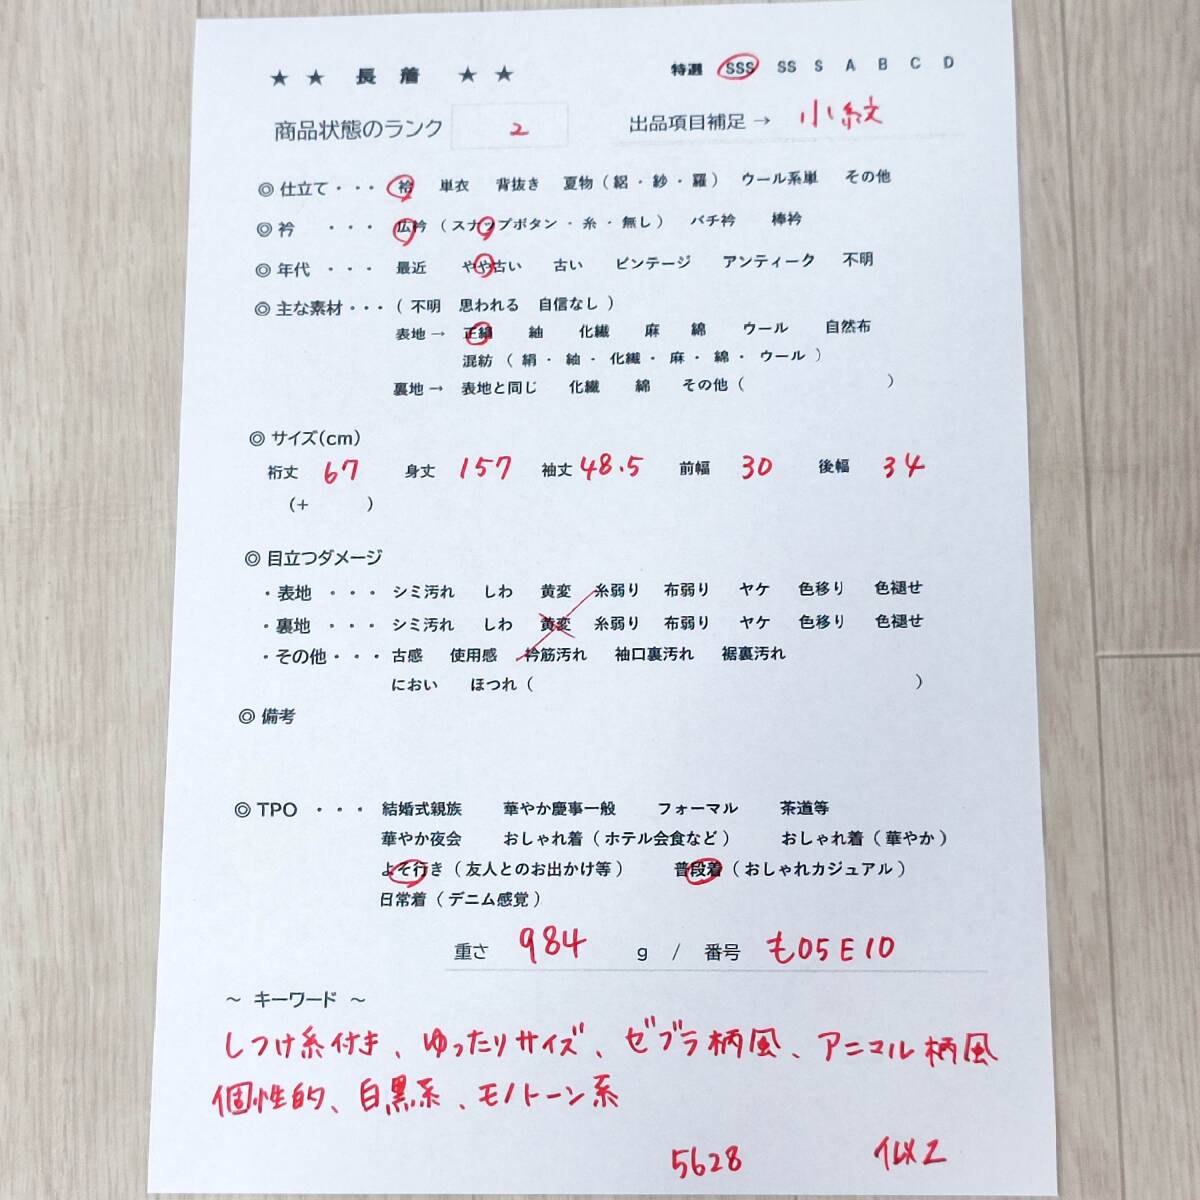 ★ ★ 長 着 ★ ★ 特選 SSS SS S A B C D
商品状態のランク 2 出品項目補足→ 小紋
◎ 仕立て・・・ 袷 単衣 背抜き 夏物(絽・紗・羅) ウール系単 その他
◎ 衿 ・・・ 広衿 (スナップボタン・糸・無し) バチ衿 棒衿
◎ 年代 ・・・ 最近 やや古い 古い ビンテージ アンティーク 不明
◎ 主な素材・・・ (不明 思われる 自信なし)
表地→ 正絹 紬 化繊 麻 綿 ウール 自然布
混紡 (絹・紬・化繊・麻・綿・ウール)
裏地→ 表地と同じ 化繊 綿 その他( )
◎ サイズ(cm)
裄丈 67 身丈 157 袖丈 48.5 前幅 30 後幅 34
(+ )
◎ 目立つダメージ
・表地 ・・・ シミ汚れ しわ 黄変 糸弱り 布弱り ヤケ 色移り 色褪せ
・裏地 ・・・ シミ汚れ しわ 黄変 糸弱り 布弱り ヤケ 色移り 色褪せ
・その他・・・ 古感 使用感 衿筋汚れ 袖口裏汚れ 裾裏汚れ
におい ほつれ( )
◎ 備考
◎ TPO ・・・ 結婚式親族 華やか慶事一般 フォーマル 茶道等
華やか夜会 おしゃれ着(ホテル会食など) おしゃれ着(華やか)
よそ行き(友人とのお出かけ等) 普段着(おしゃれカジュアル)
日常着(デニム感覚)
重さ 984 g / 番号 も05E10
～ キーワード ～
しつけ糸付き、ゆったりサイズ、ゼブラ柄風、アニマル柄風
個性的、白黒系、モノトーン系
5628